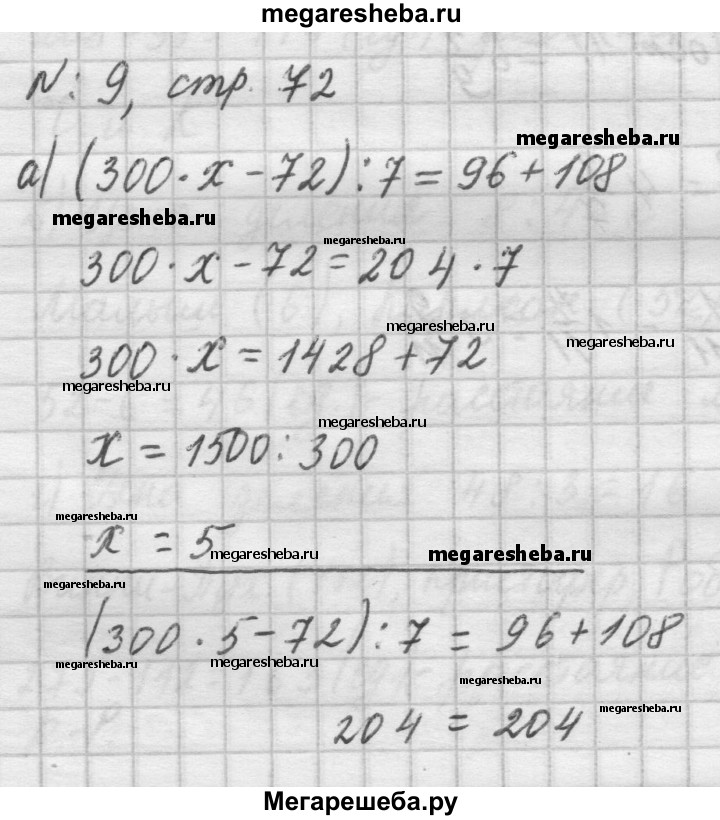 megaresheba.ru
N: 9, стр. 72
megaresheba.ru
а) (300 · x - 72) : 7 = 96 + 108
megaresheba.ru
megaresheba.ru
300 · x - 72 = 204 · 7
megaresheba.ru
megaresheba.ru
300 · x = 1428 + 72
megaresheba.ru
megaresheba.ru
x = 1500 : 300
megaresheba.ru
x = 5
megaresheba.ru
megaresheba.ru
megaresheba.ru
megaresheba.ru
(300 · 5 - 72) : 7 = 96 + 108
megaresheba.ru
megaresheba.ru
megaresheba.ru
megaresheba.ru
204 = 204
Мегарешеба.ру